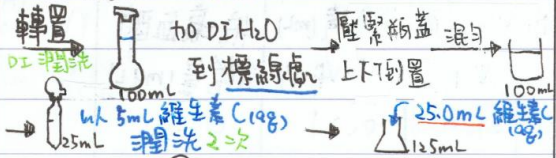 轉置
DI潤洗
100mL
加DI H2O
到標線處
壓緊瓶蓋
上下倒置
混勻
100mL
25mL
以 5mL 維生素C(aq)
潤洗2次
25.0mL 維生素C(aq)
125mL